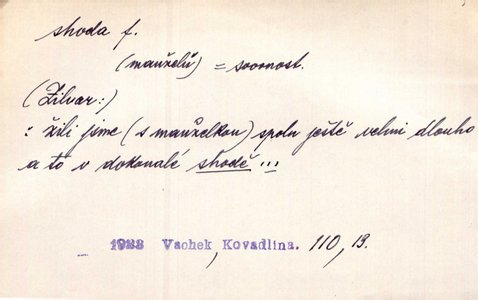 shoda f.
(manželů) = svornost.
(Žilvar:)
: žili jsme (s manželkou) spolu ještě velmi dlouho
a to v dokonalé shodě ...
1933 Vachek, Kovadlina. 110, 13.